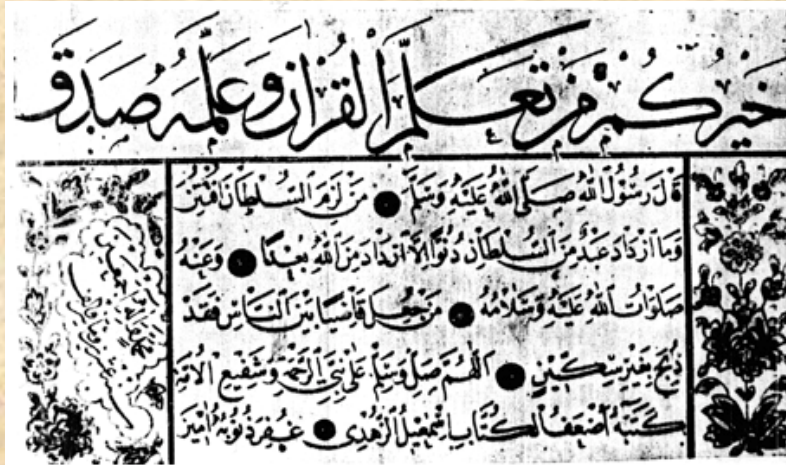 خَيْرُكُمْ مَنْ تَعَلَّمَ الْقُرْاٰنَ وَعَلَّمَهُ صَدَقَ
قَالَ رَسُولُ اللّٰهِ صَلَّى اللّٰهُ عَلَيْهِ وَسَلَّمَ مَنْ لَزِمَ السُّلْطَانَ افْتُتِنَ
وَمَا ازْدَادَ عَبْدٌ مِنَ السُّلْطَانِ دُنُوًّا اِلَّا ازْدَادَ مِنَ اللّٰهِ بُعْدًا وَعَنْهُ
صَلَوَاتُ اللّٰهِ عَلَيْهِ وَسَلَامُهُ مَنْ جُعِلَ قَاضِيًا بَيْنَ النَّاسِ فَقَدْ
ذُبِحَ بِغَيْرِ سِكِّينٍ اَللّٰهُمَّ صَلِّ وَسَلِّمْ عَلٰى نَبِيِّ الرَّحْمَةِ وَشَفِيعِ الْاُمَّةِ
كَتَبَهُ اَضْعَفُ الْكُتَّابِ اِسْمٰعِيلُ الزُّهْدِي غُفِرَ ذُنُوبُهُ اٰمِينَ